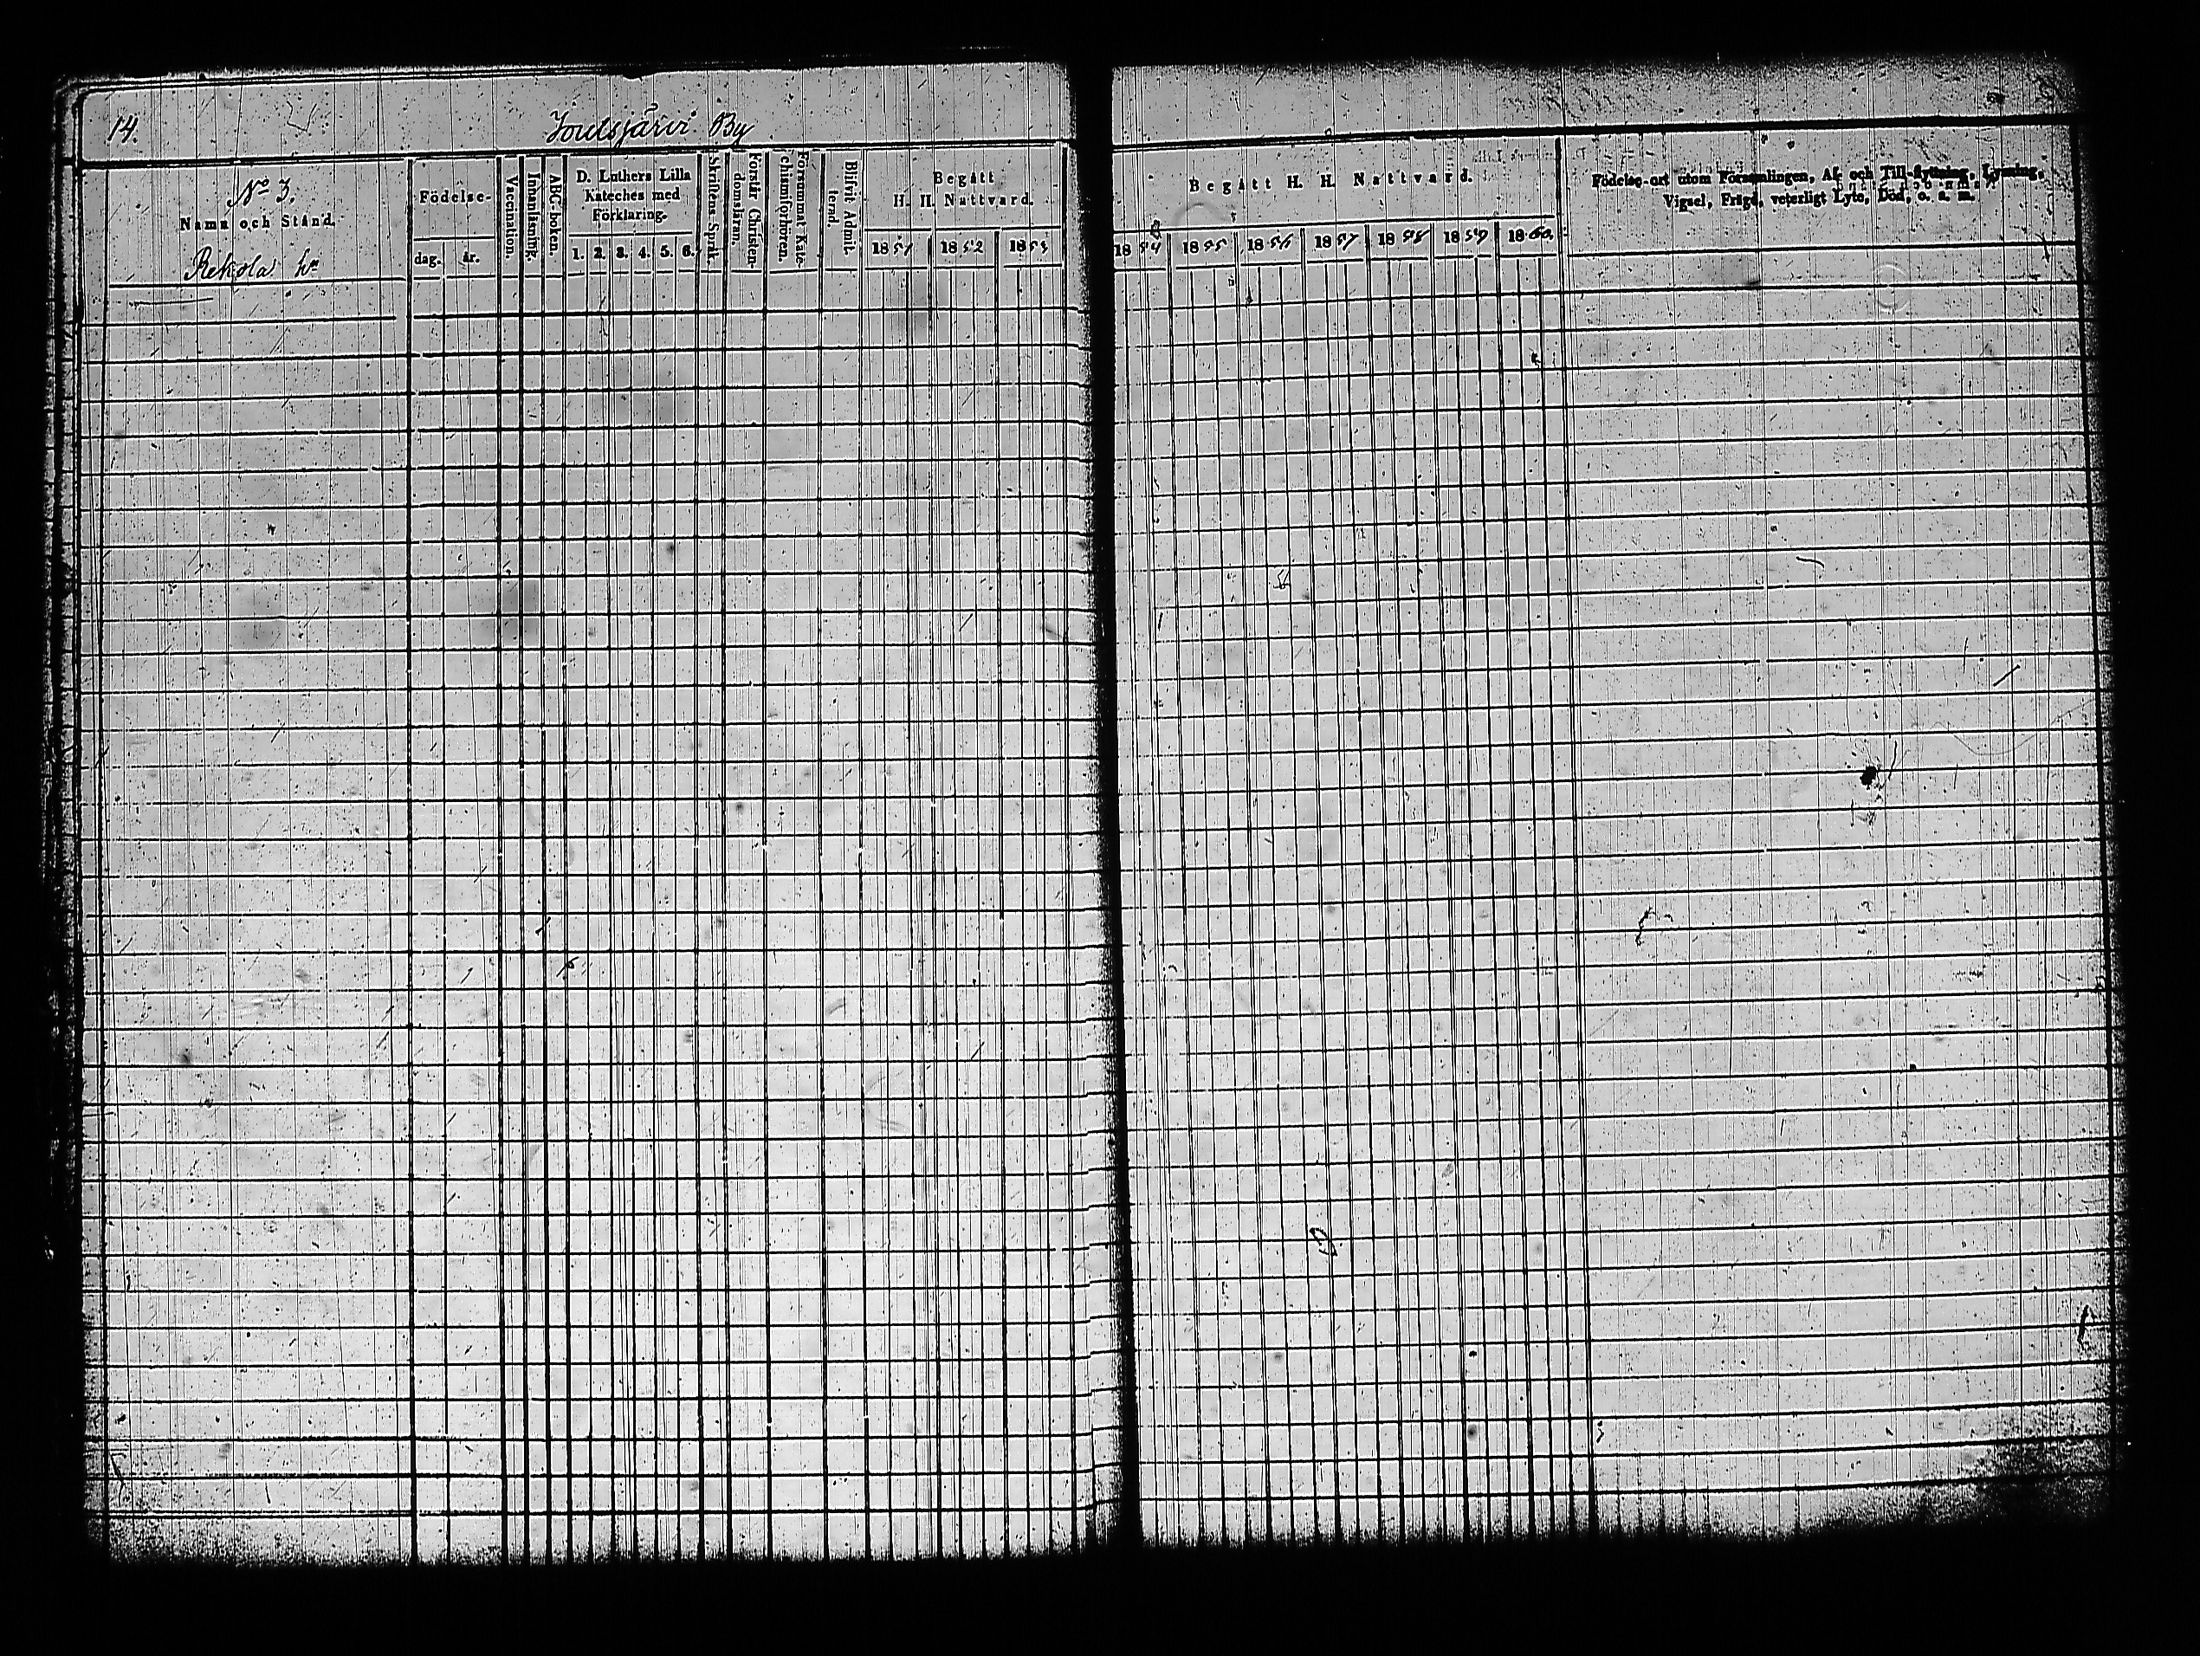 14.
Joutsjärvi By
No 3.
Namn och Stånd.
Rekola hn
Födelse-
dag. år.
Vaccination.
Innanläsning.
ABC-boken.
D. Luthers Lilla
Kateches med
Förklaring.
1. 2. 3. 4. 5. 6.
Skriftens Språk.
Förstår Christen-
domsläran.
Försummat Kate-
chismiförhören.
Blifvit Admit-
terad.
Begått
H. H. Nattvard.
1851 1852 1853
Begått H. H. Nattvard.
1854 1855 1856 1857 1858 1859 1860.
Födelse-ort utom Församlingen, Af- och Till-flyttning, Lysning,
Vigsel, Frägd, veterligt Lyte, Död, o. s. m.